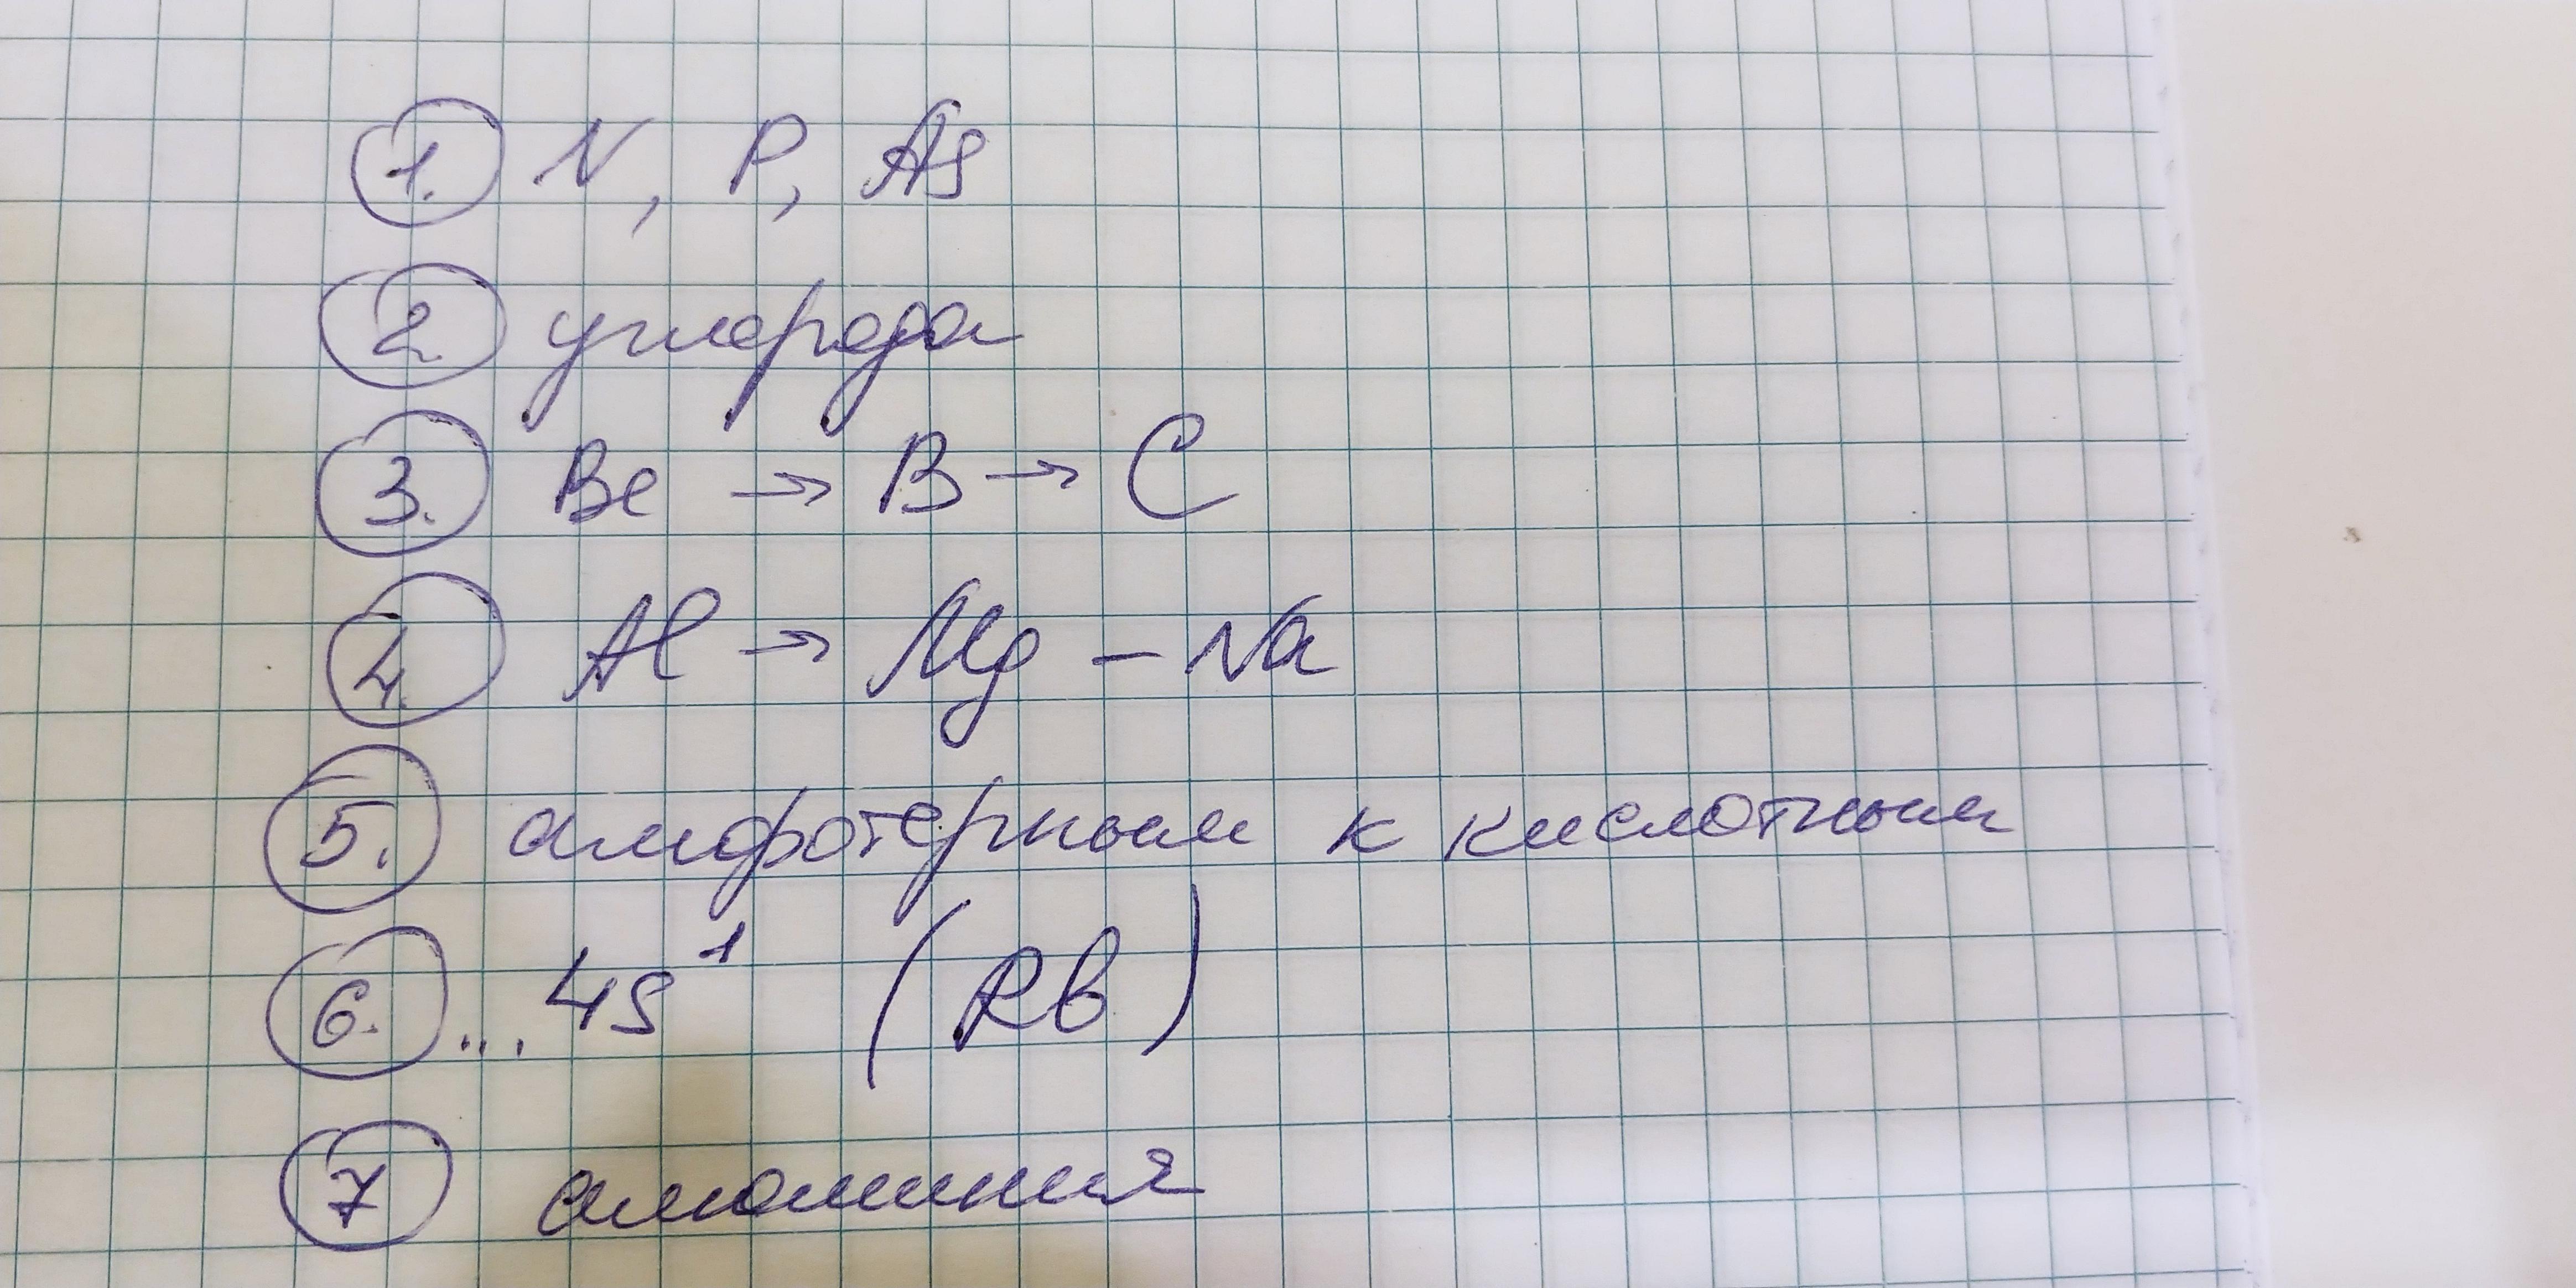 1. N, P, As
2. углерода
3. Be → B → C
4. Al → Mg – Na
5. амфотерным к кислотным
6. ... 4s¹ (Rb)
7 алюминия